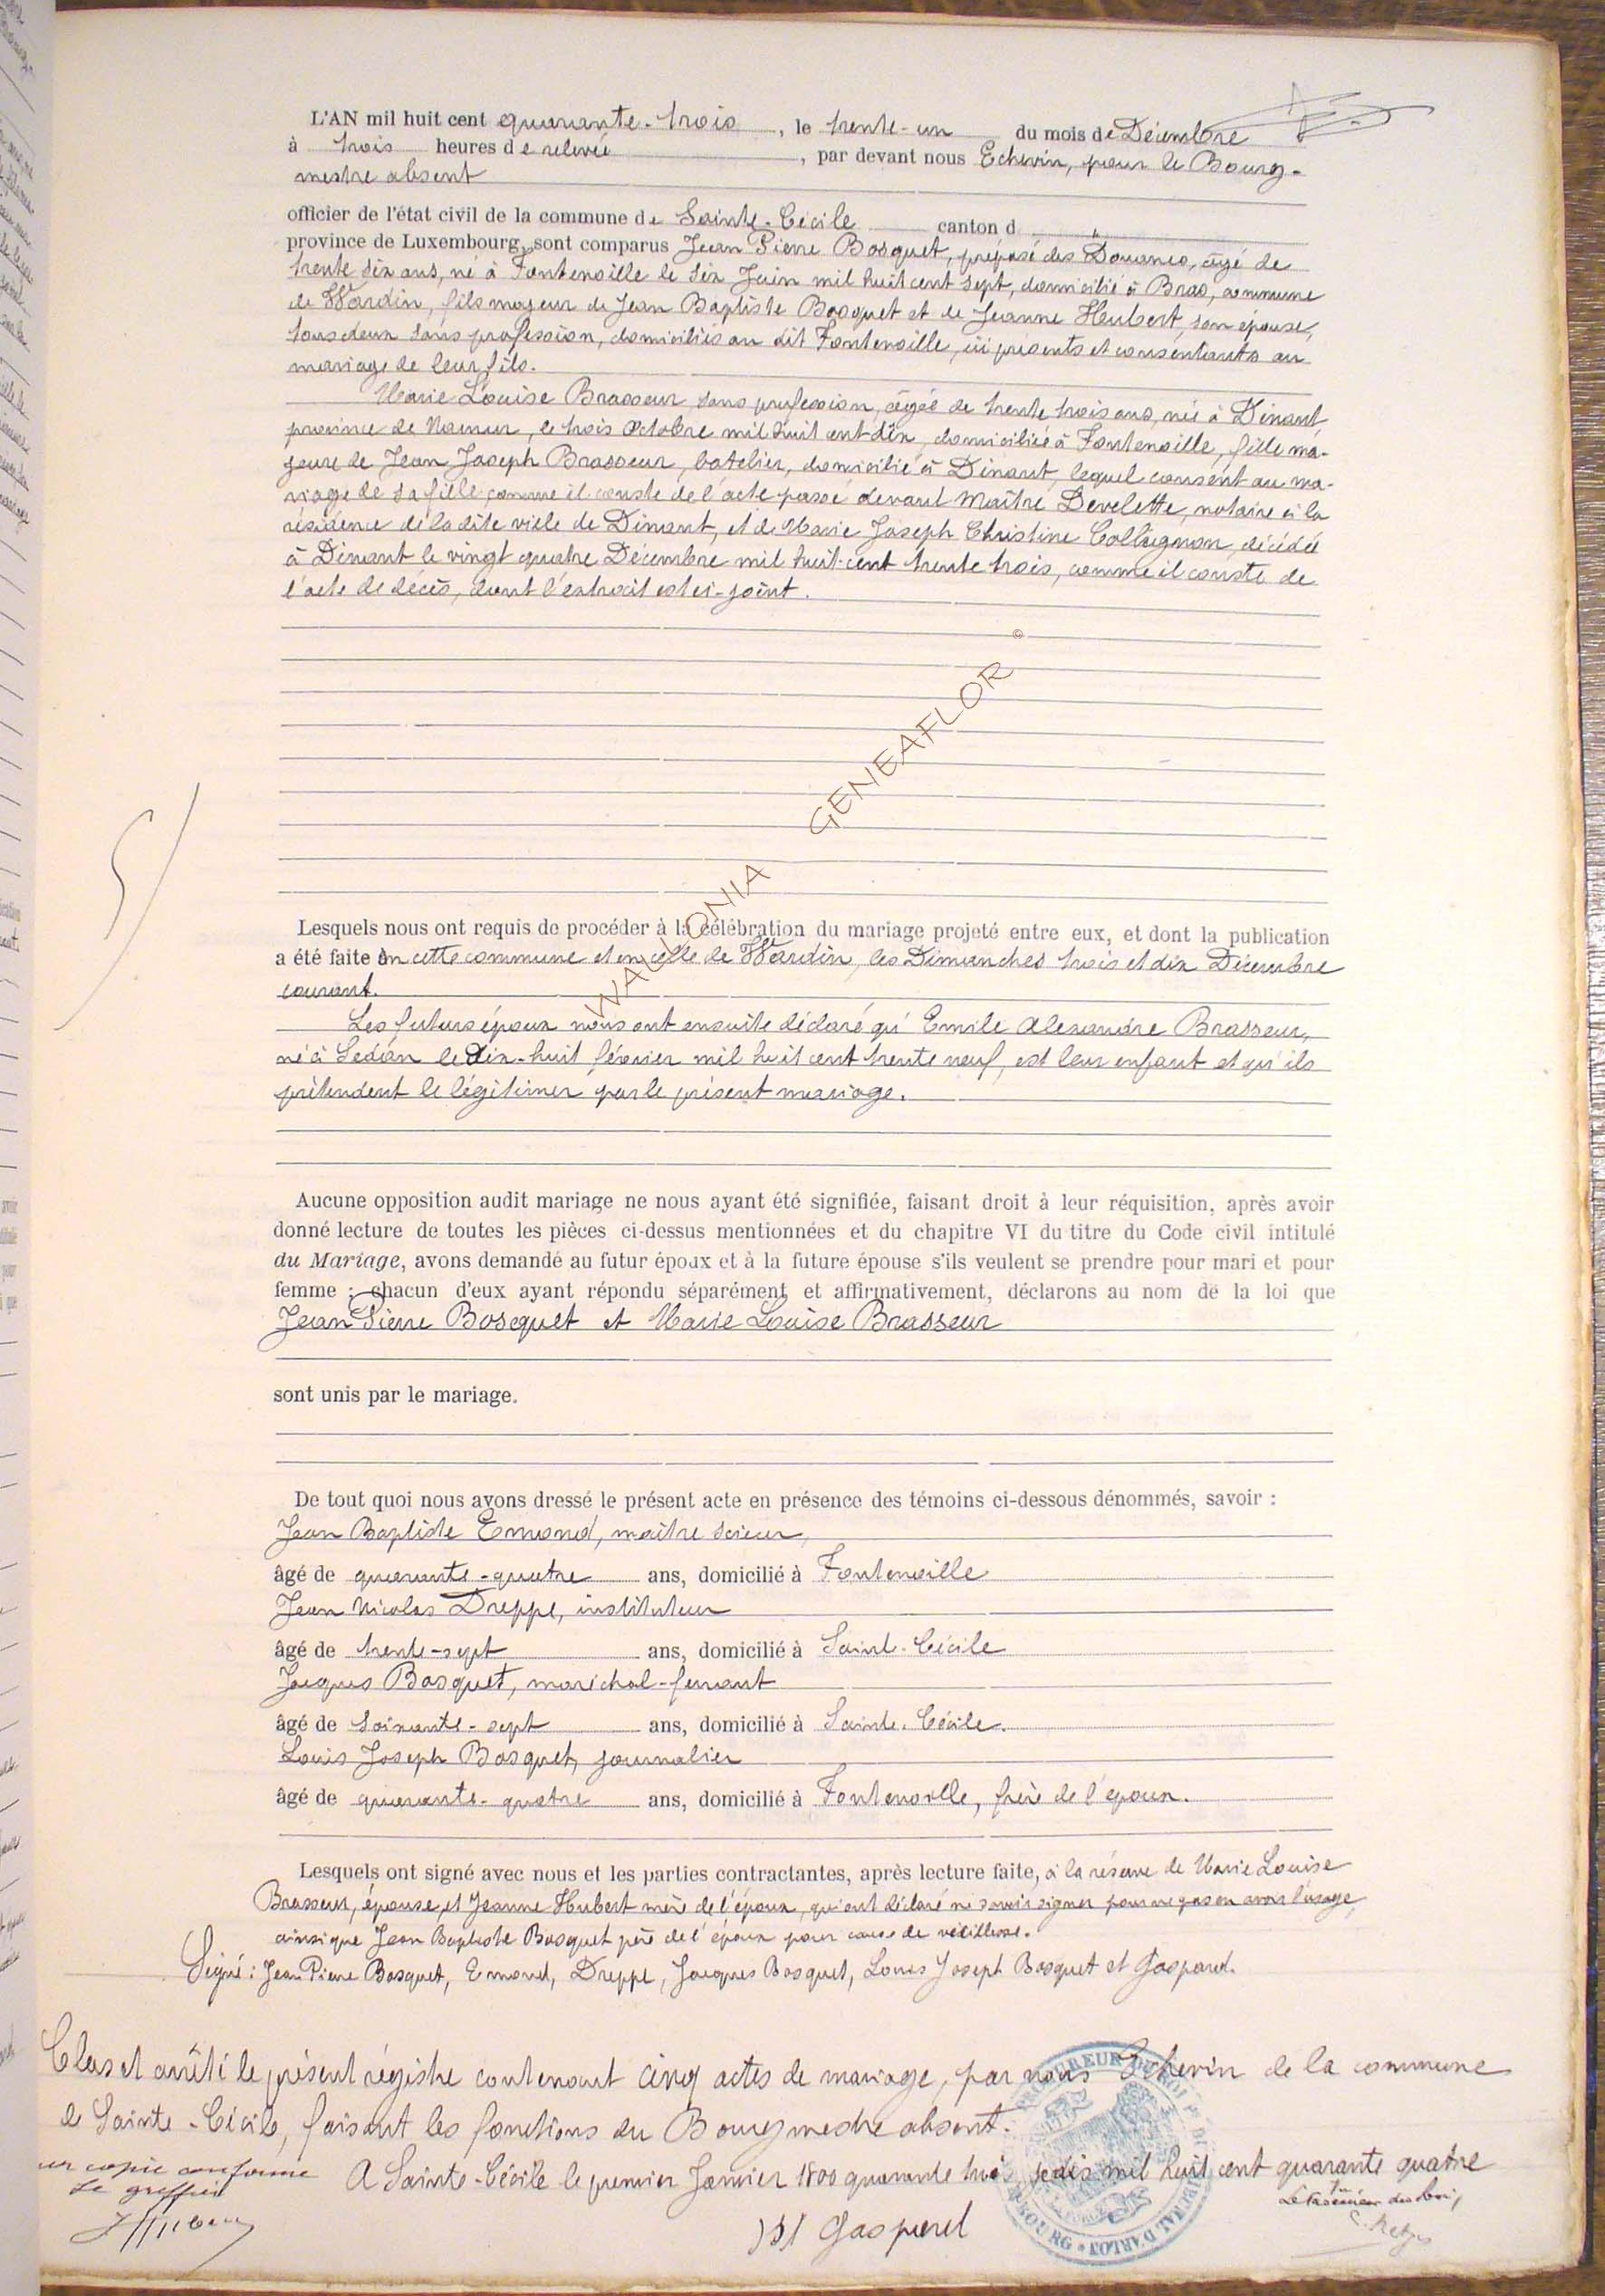 L'AN mil huit cent quarante-trois, le trente-un du mois de Décembre
à trois heures de relevée, par devant nous Echevin, pour le Bourg-
mestre absent
officier de l'état civil de la commune de Sainte-Cécile canton d "
province de Luxembourg, sont comparus Jean Pierre Bosquet, préposé des Douanes, âgé de
trente six ans, né à Fontenoille le six Juin mil huit cent sept, domicilié à Bras, commune
de Wardin, fils majeur de Jean Baptiste Bosquet et de Jeanne Hubert, son épouse,
tous deux sans profession, domiciliés au dit Fontenoille, ici présents et consentants au
mariage de leur fils.
Marie Louise Brasseur sans profession, âgée de trente trois ans, née à Dinant,
province de Namur, le trois Octobre mil huit cent dix, domiciliée à Fontenoille, fille ma-
jeure de Jean Joseph Brasseur, batelier, domicilié à Dinant, lequel consent au ma-
riage de sa fille comme il conste de l'acte passé devant Maître Develette, notaire à la
résidence de la dite ville de Dinant, et de Marie Joseph Christine Collignon, décédée
à Dinant le vingt quatre Décembre mil huit-cent trente trois, comme il conste de
l'acte de décès, dont l'extrait est ci-joint.
WALLONIA GENEAFLOR ©
5
Lesquels nous ont requis de procéder à la célébration du mariage projeté entre eux, et dont la publication
a été faite en cette commune et en celle de Wardin, les Dimanches trois et dix Décembre
courant.
Les futurs époux nous ont ensuite déclaré qu' Emile Alexandre Brasseur,
né à Sedan le dix-huit février mil huit cent trente neuf, est leur enfant et qu'ils
prétendent le légitimer par le présent mariage.
Aucune opposition audit mariage ne nous ayant été signifiée, faisant droit à leur réquisition, après avoir
donné lecture de toutes les pièces ci-dessus mentionnées et du chapitre VI du titre du Code civil intitulé
du Mariage, avons demandé au futur époux et à la future épouse s'ils veulent se prendre pour mari et pour
femme ; chacun d'eux ayant répondu séparément et affirmativement, déclarons au nom de la loi que
Jean Pierre Bosquet et Marie Louise Brasseur
sont unis par le mariage.
De tout quoi nous avons dressé le présent acte en présence des témoins ci-dessous dénommés, savoir :
Jean Baptiste Emond, maître scieur,
âgé de quarante-quatre ans, domicilié à Fontenoille
Jean Nicolas Dreppe, instituteur
âgé de trente-sept ans, domicilié à Saint-Cécile
Jacques Bosquet, maréchal-ferrant
âgé de soixante-sept ans, domicilié à Sainte-Cécile.
Louis Joseph Bosquet, journalier
âgé de quarante-quatre ans, domicilié à Fontenoille, frère de l'époux.
Lesquels ont signé avec nous et les parties contractantes, après lecture faite, à la réserve de Marie Louise
Brasseur, épouse, et Jeanne Hubert mère de l'époux, qui ont déclaré ne savoir signer pour ne pas en avoir l'usage,
ainsi que Jean Baptiste Bosquet père de l'époux pour cause de vieillesse.
Signé : Jean Pierre Bosquet, Emond, Dreppe, Jacques Bosquet, Louis Joseph Bosquet et Gaspard.
Clos et arrêté le présent régistre contenant cinq actes de mariage, par nous Echevin de la commune
de Sainte-Cécile, faisant les fonctions du Bourgmestre absent.
A Sainte-Cécile le premier Janvier 1800 quarante trois je dis mil huit cent quarante quatre
copie conforme
Le greffier
(s) Gaspard
PROCUREUR DU ROI TRIBUNAL D'ARLON